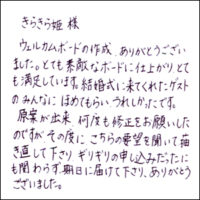 きらきら姫 様
ウェルカムボードの作成、ありがとうござい
ました。とても素敵なボードに仕上がりとて
も満足しています。結婚式に来てくれたゲスト
のみんなに ほめてもらい うれしかったです。
原案が出来、何度も修正をお願いした
のですが その度に こちらの要望を聞いて描
き直して下さり ギリギリの申し込みだったに
も関わらず 期日に届けて下さり、ありがとう
ございました。